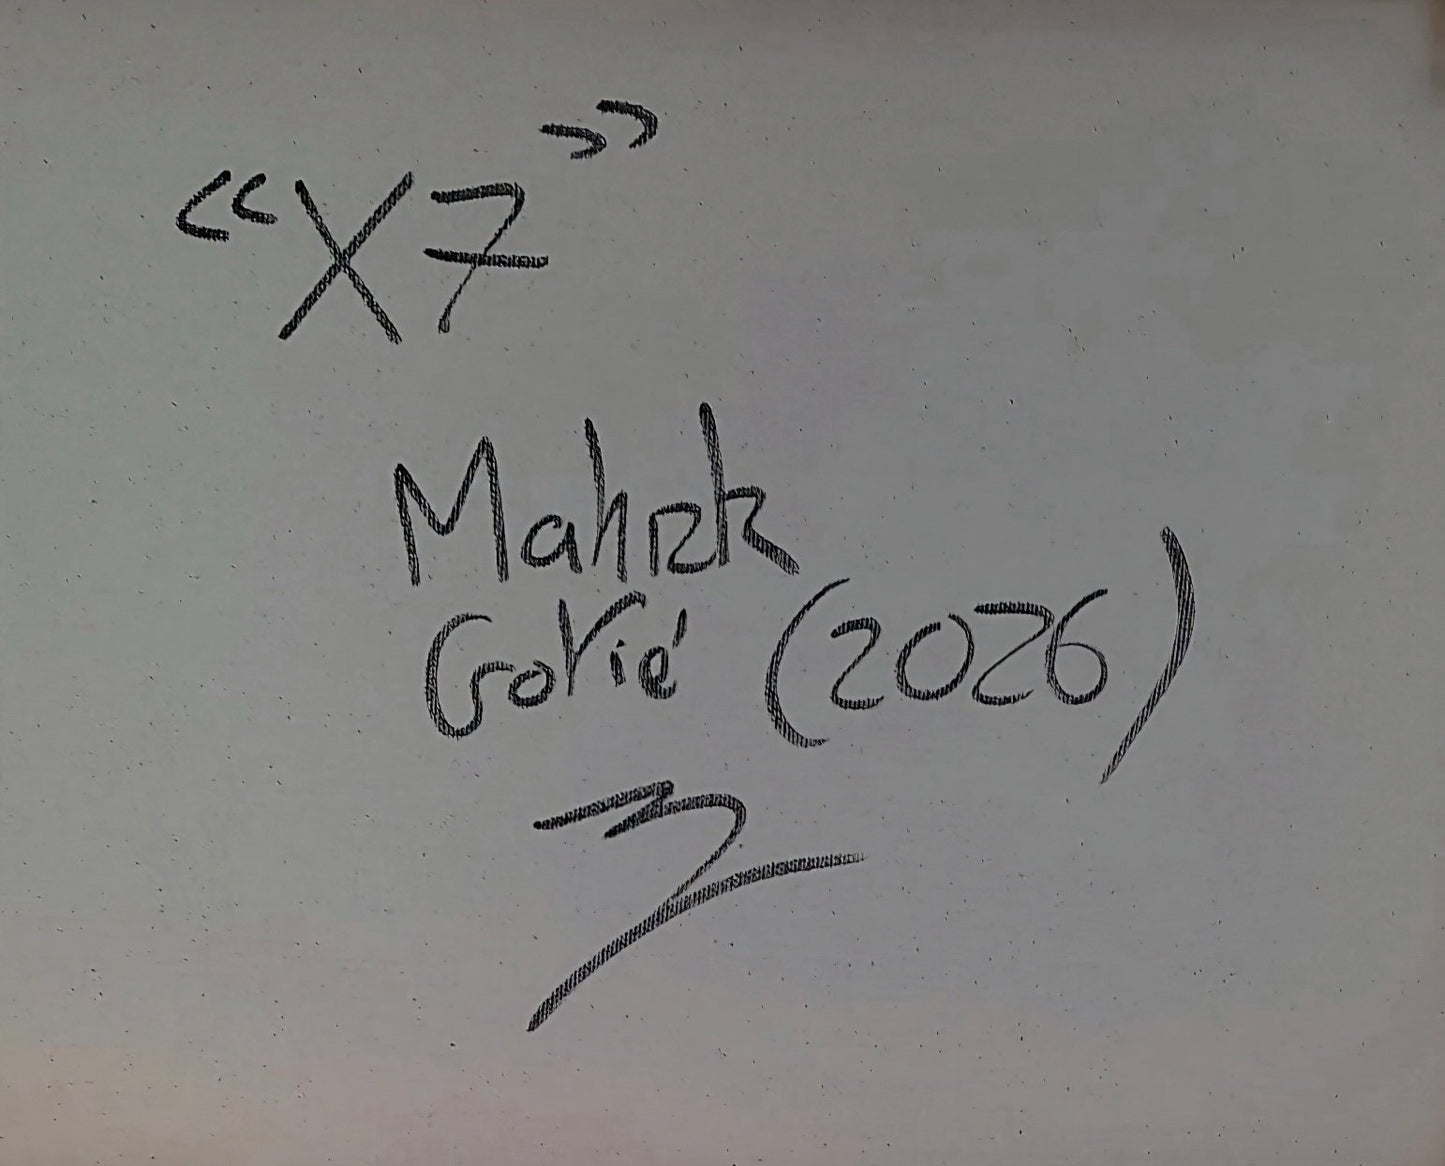 “X7”
Mahrk
Gorié (2026)